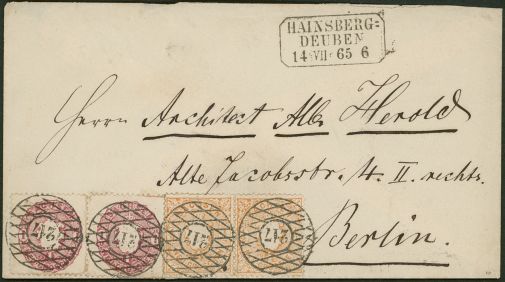 HAINSBERG:
DEUBEN
14 VII 65 6
Herrn Architect Alb. Herold
Alte Jacobsstr. 4. II. rechts.
Berlin.
217 217 217 217